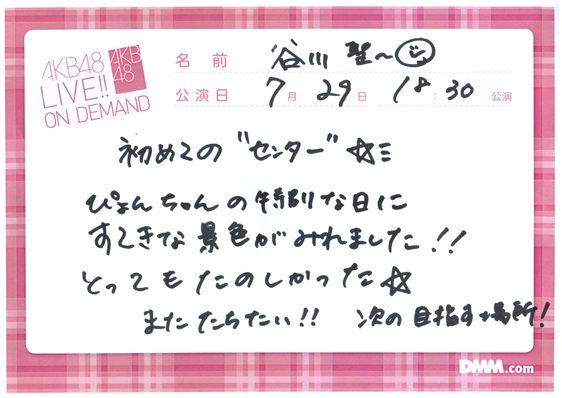 AKB48
LIVE!!
ON DEMAND
AKB
48
名前 谷川 聖〜
公演日 7月 29日 18:30 公演
初めての "センター" ☆ミ
ぴょんちゃんの特別な日に
すてきな景色がみれました!!
とってもたのしかった☆
またたちたい!! 次の目指す場所!
DMM.com